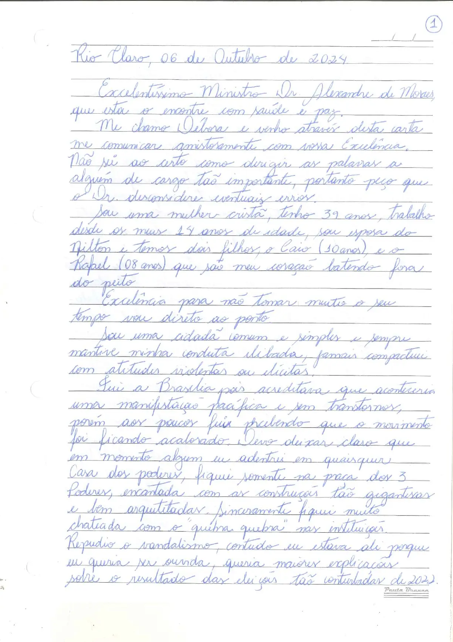 1
Rio Claro, 06 de Outubro de 2024
Excelentíssimo Ministro Dr. Alexandre de Morais,
que esta o encontre com saúde e paz.
Me chamo Débora e venho através desta carta
me comunicar amistosamente com vossa Excelência.
Não sei ao certo como dirigir as palavras a
alguém de cargo tão importante, portanto peço que
o Dr. desconsidere eventuais erros.
Sou uma mulher cristã, tenho 39 anos, trabalho
desde os meus 14 anos de idade, sou esposa do
Nilton e temos dois filhos, o Caio (10 anos), e o
Rafael (08 anos) que são meu coração batendo fora
do peito.
Excelência para não tomar muito o seu
tempo vou direto ao ponto
Sou uma cidadã comum e simples e sempre
mantive minha conduta ilibada, jamais compactuei
com atitudes violentas ou ilícitas.
Fui a Brasília pois acreditava que aconteceria
uma manifestação pacífica e sem transtornos,
porém aos poucos fui percebendo que o movimento
foi ficando acalorado. Devo deixar claro que
em momento algum eu adentrei em quaisquer
Casa dos poderes, fiquei somente na praça dos 3
Poderes, encantada com as construção tão gigantescas
e bem arquitetadas. Sinceramente fiquei muito
chateada com o "quebra quebra" nas instituição.
Repudio o vandalismo, contudo eu estava ali porque
eu queria ser ouvida, queria maiores explicações
sobre o resultado das eleição tão conturbadas de 2022.